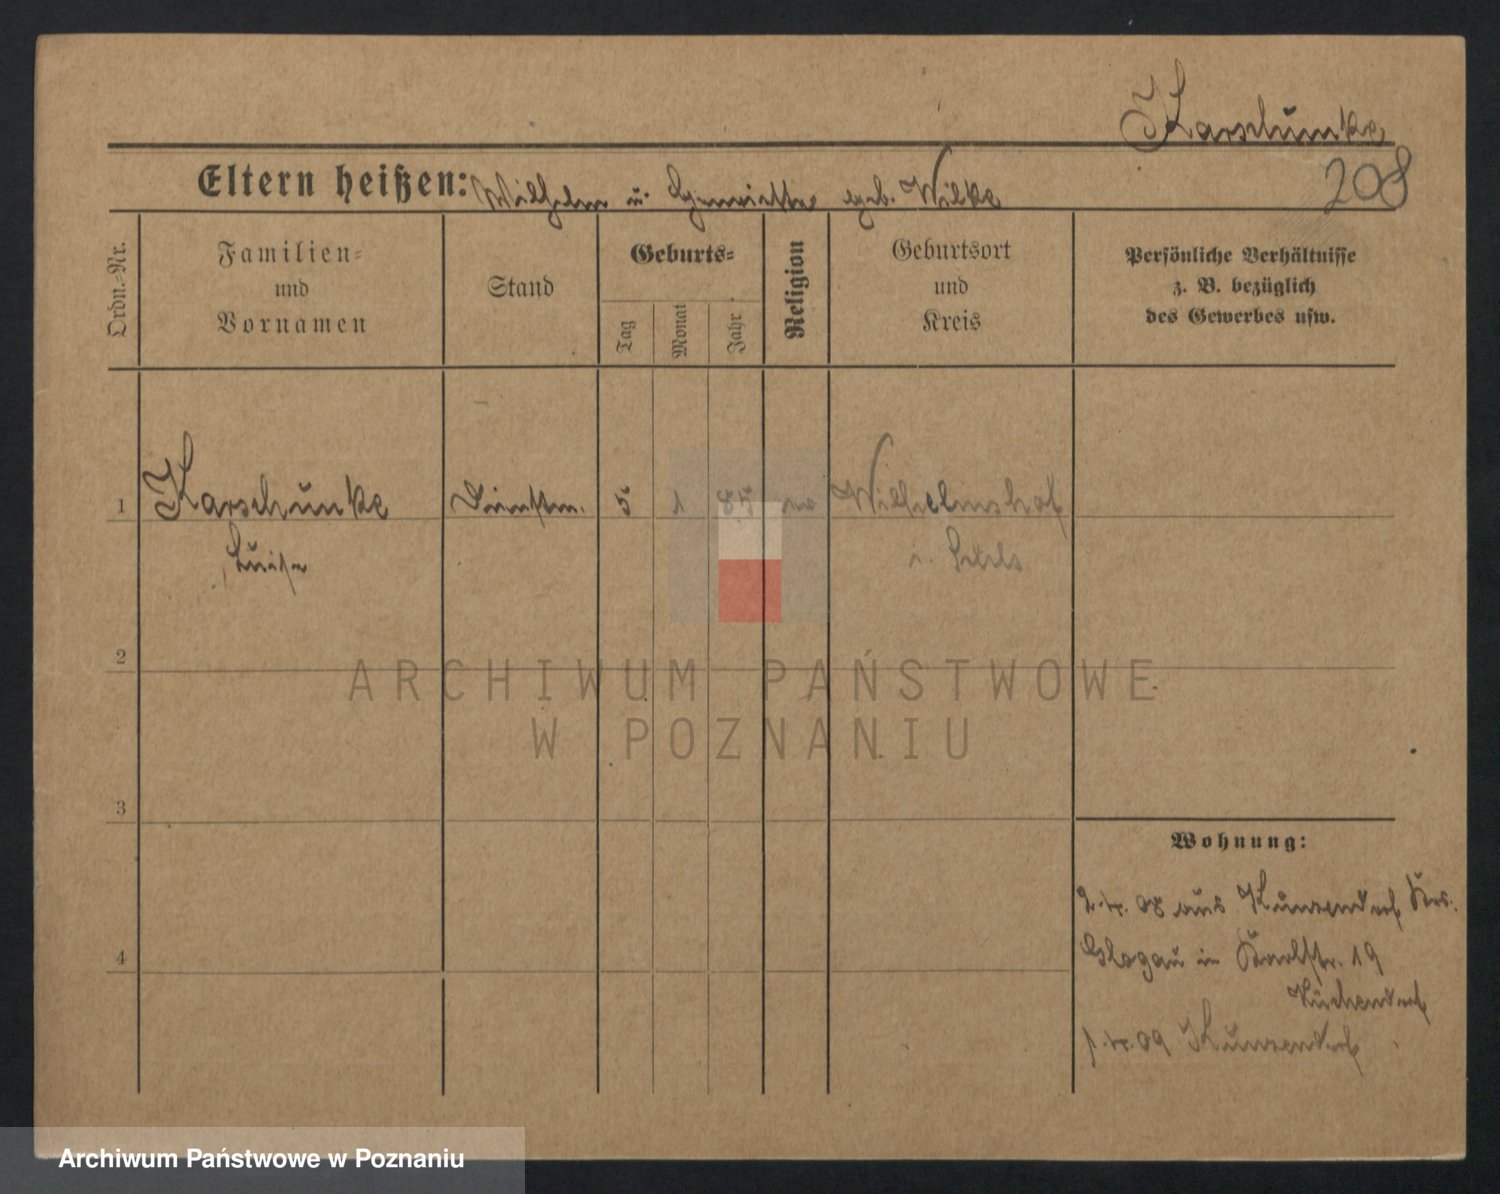 Karschunke
208
Eltern heißen: Wilhelm u. Henriette geb. Wilke
Ordn.-Nr.
Familien-
und
Vornamen
Stand
Geburts-
Tag
Monat
Jahr
Religion
Geburtsort
und
Kreis
Persönliche Verhältnisse
z. B. bezüglich
des Gewerbes usw.
1
Karschunke
Luise
Dienstm.
5
1
85
Wilhelmshof
2
3
4
Wohnung:
aus Kunzendorf Krs.
Glogau in Karlstr. 19
09 Kunzendorf
ARCHIWUM PAŃSTWOWE
W POZNANIU
Archiwum Państwowe w Poznaniu